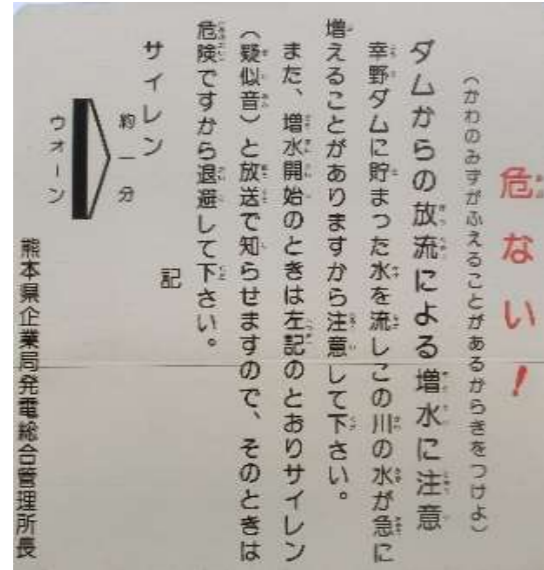 危ない!
(かわのみずがふえることがあるからきをつけよ)
ダムからの放流による増水に注意
幸野ダムに貯まった水を流しこの川の水が急に
増えることがありますから注意して下さい。
また、増水開始のときは左記のとおりサイレン
(疑似音)と放送で知らせますので、そのときは
危険ですから退避して下さい。
記
サイレン
約一分
ウオーン
熊本県企業局発電総合管理所長